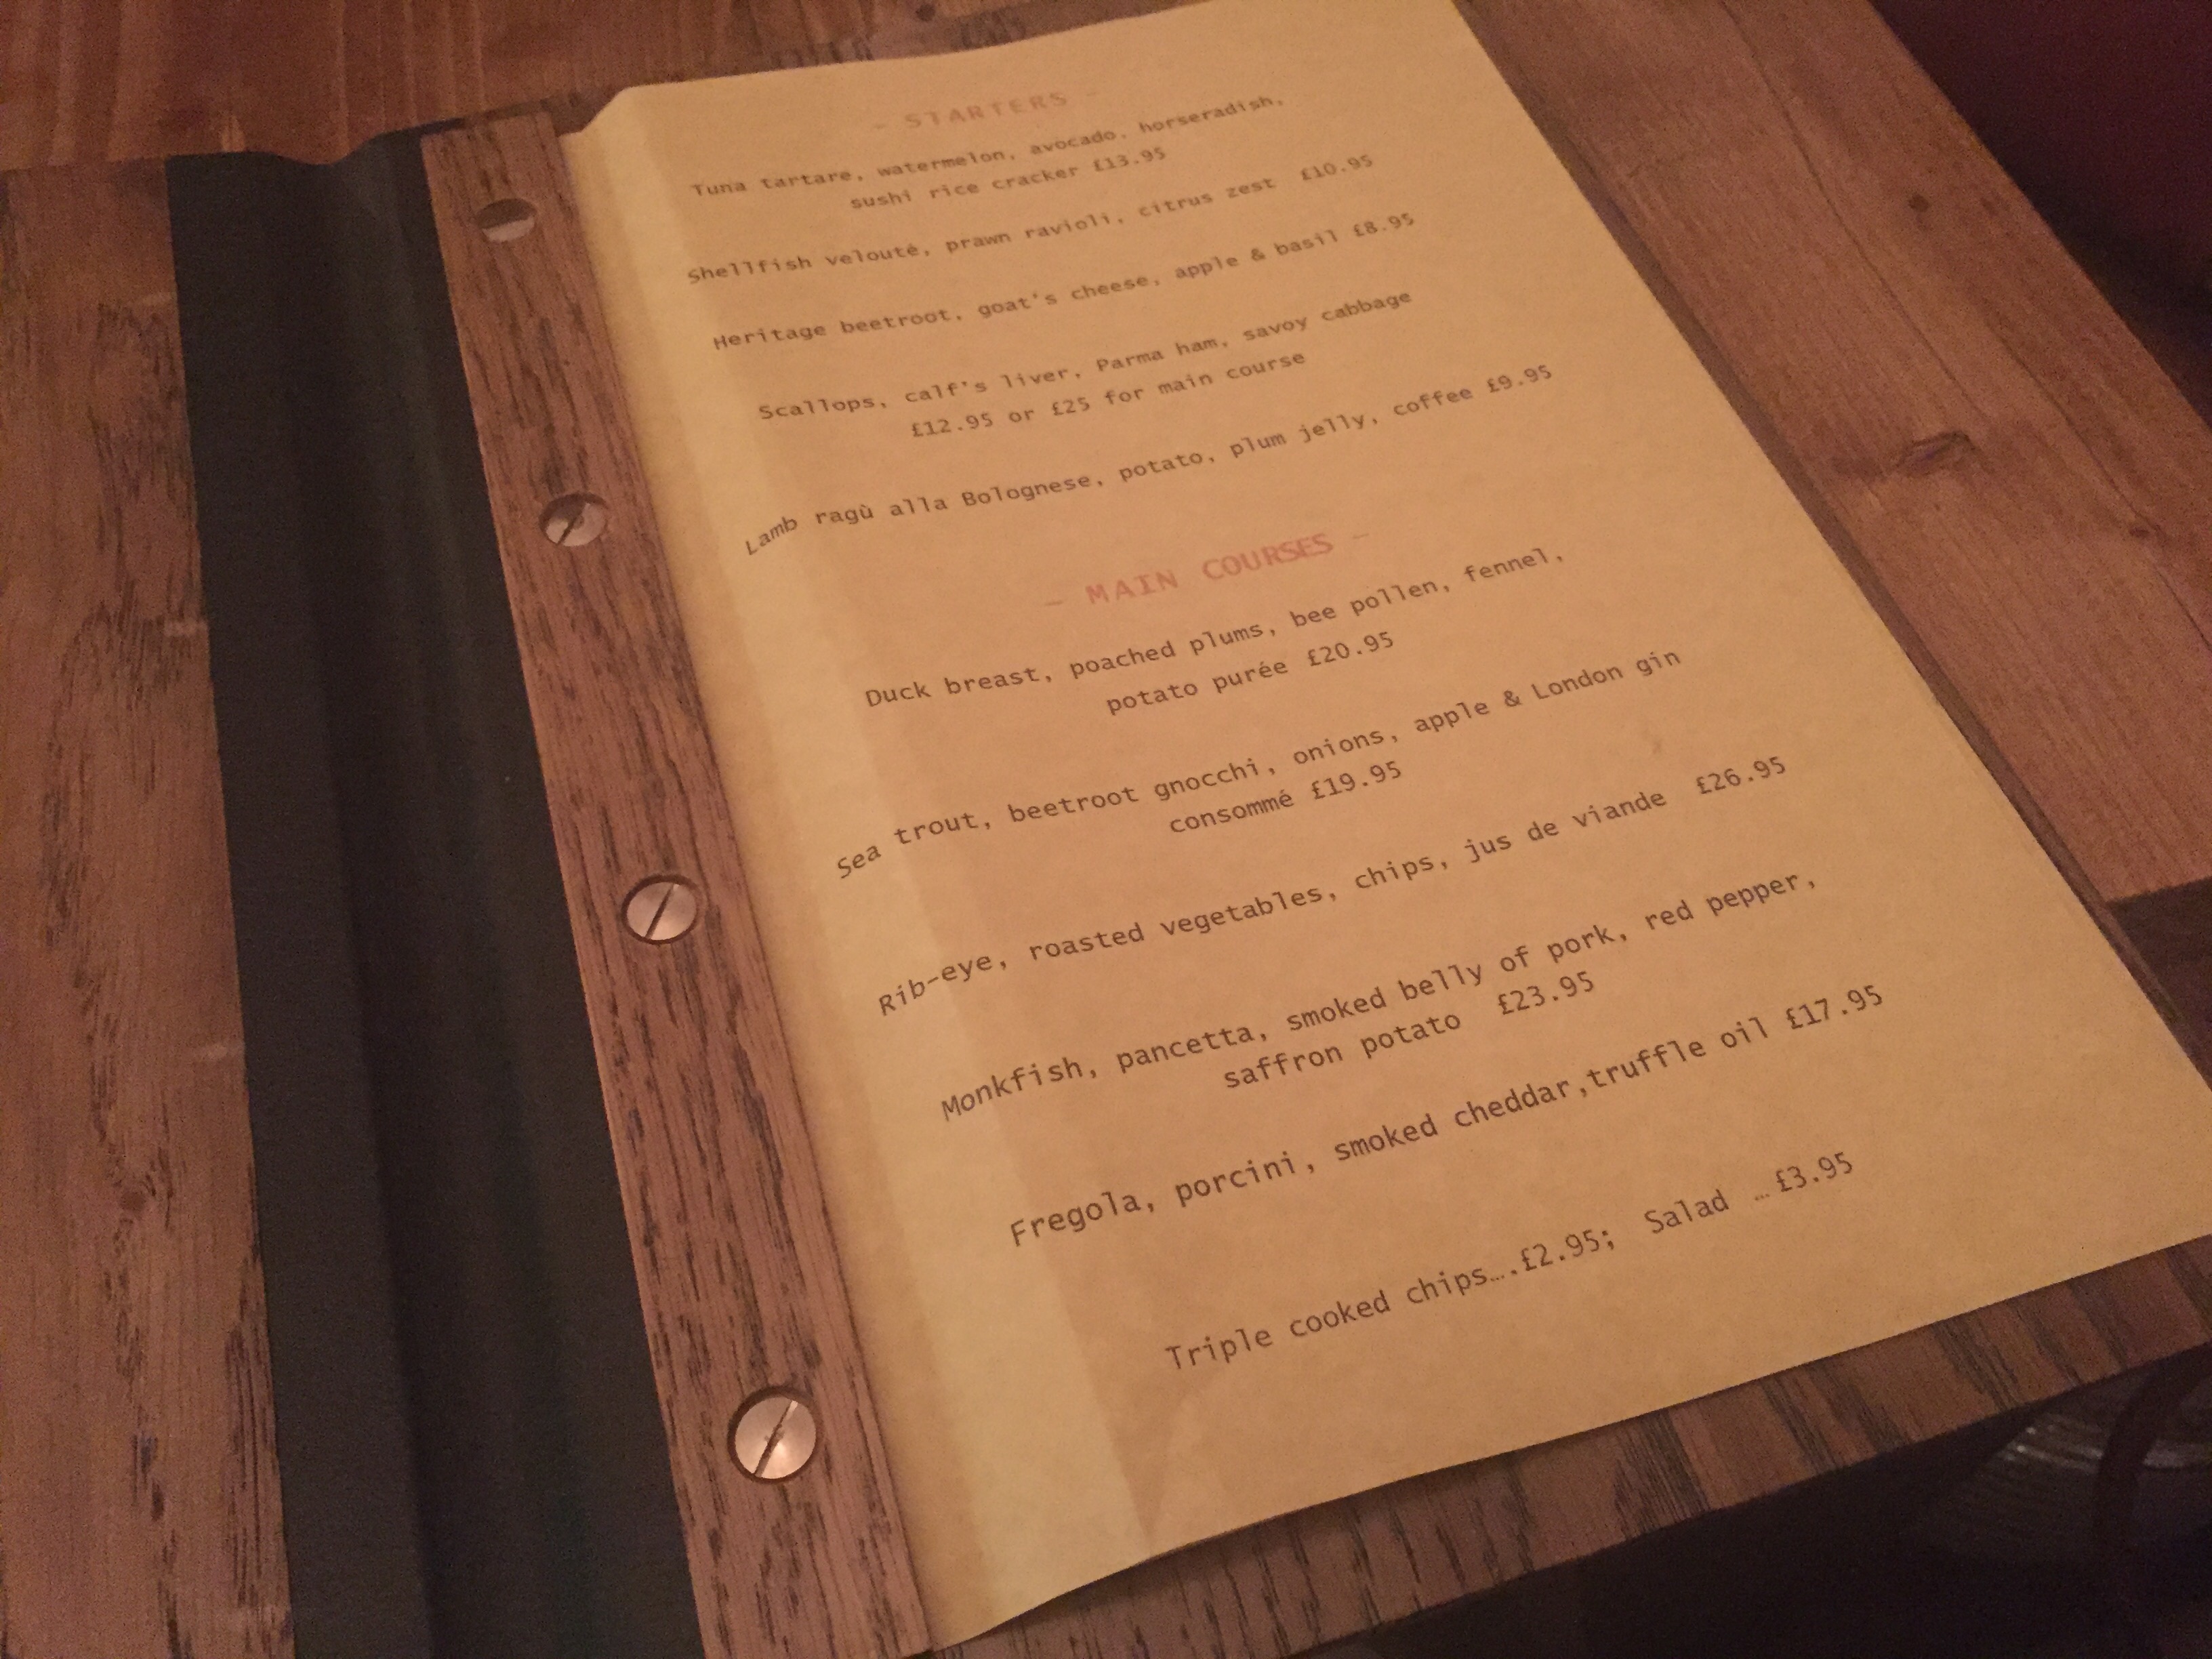 – STARTERS –
Tuna tartare, watermelon, avocado, horseradish,
sushi rice cracker £13.95
Shellfish velouté, prawn ravioli, citrus zest £10.95
Heritage beetroot, goat's cheese, apple & basil £8.95
Scallops, calf's liver, Parma ham, savoy cabbage
£12.95 or £25 for main course
Lamb ragù alla Bolognese, potato, plum jelly, coffee £9.95
– MAIN COURSES –
Duck breast, poached plums, bee pollen, fennel,
potato purée £20.95
Sea trout, beetroot gnocchi, onions, apple & London gin
consommé £19.95
Rib-eye, roasted vegetables, chips, jus de viande £26.95
Monkfish, pancetta, smoked belly of pork, red pepper,
saffron potato £23.95
Fregola, porcini, smoked cheddar,truffle oil £17.95
Triple cooked chips….£2.95; Salad …£3.95